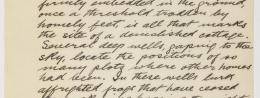 firmly embedded in the ground,
once a threshold trodden by
homely feet, is all that marks
the site of a demolished cottage.
Several deep wells, gaping to the
sky, locate the positions of as
many plots where other homes
had been. In these wells lurk
affrighted frogs that have ceased